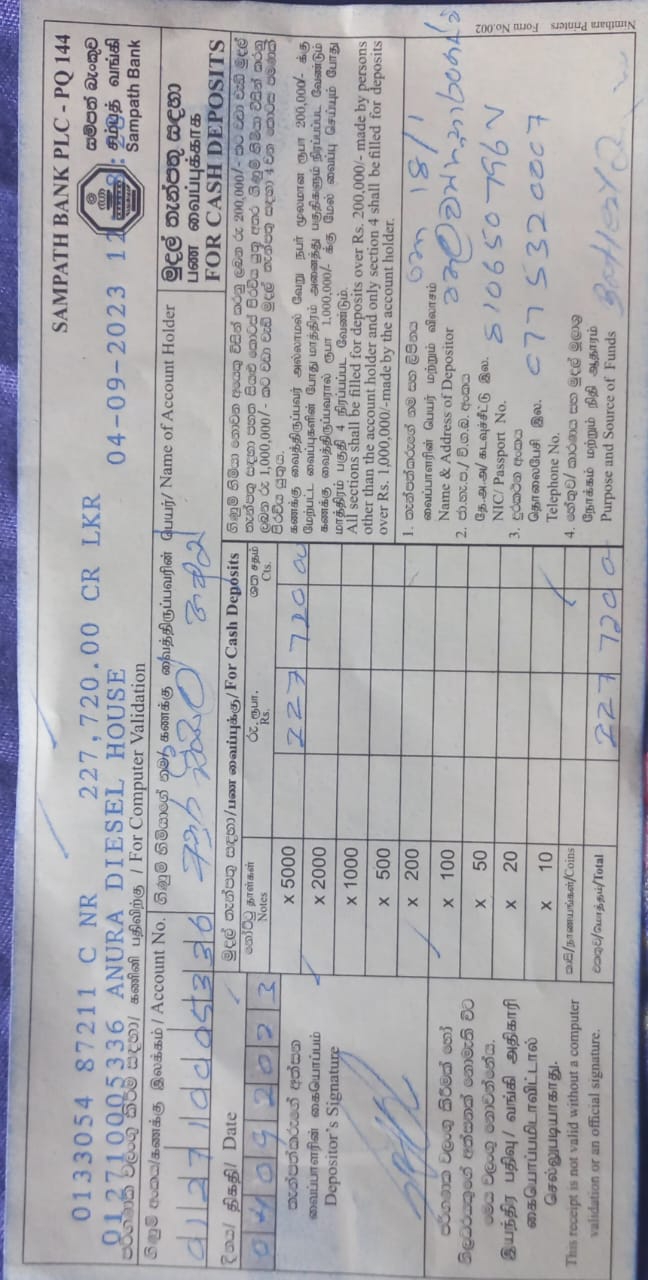 SAMPATH BANK PLC - PQ 144
සම්පත් බැංකුව
சம்பத் வங்கி
Sampath Bank
0133054 87211 C NR 227,720.00 CR LKR 04-09-2023 12
012710005336 ANURA DIESEL HOUSE
පරිගණක වලංගු කිරීම සඳහා/ கணினி பதிவிற்கு / For Computer Validation
මුදල් තැන්පතු සඳහා
பண வைப்புக்காக
FOR CASH DEPOSITS
ගිණුම් අංකය/கணக்கு இலக்கம்/Account No.
012710005336
ගිණුම් හිමියාගේ නම/ கணக்கு வைத்திருப்பவரின் பெயர்/ Name of Account Holder
අනුර ඩීසල්
දිනය/ திகதி/ Date
04092023
තැන්පත්කරුගේ අත්සන
வைப்பாளரின் கையொப்பம்
Depositor's Signature
පරිගණක වලංගු කිරීමක් හෝ
නිලධාරියකුගේ අත්සනක් නොමැති විට
මෙය වලංගු නොවන්නේය.
இயந்திர பதிவு/ வங்கி அதிகாரி
கையொப்பமிடாவிட்டால்
செல்லுபடியாகாது.
This receipt is not valid without a computer
validation or an official signature.
මුදල් තැන්පතු සඳහා/பண வைப்புக்கு/For Cash Deposits
නෝට්ටු தாள்கள்
Notes
රු. ரூபா.
Rs.
ශත சதம்
Cts.
X 5000 227 720 00
X 2000
X 1000
X 500
X 200
X 100
X 50
X 20
X 10
කාසි/நாணயங்கள்/Coins
එකතුව/மொத்தம்/Total 227 720
ගිණුම් හිමියා නොවන අයෙකු විසින් කරනු ලබන රු 200,000/- කට වඩා වැඩි මුදල්
தைப்பற்று
கணக்கு வைத்திருப்பவர் அல்லாமல் வேறு நபர் மூலமான ரூபா 200,000/- க்கு
மேற்பட்ட வைப்புகளின் போது மாத்திரம் அனைத்து பகுதிகளும் நிரப்பப்பட வேண்டும்
கணக்கு வைத்திருப்பவரால் ரூபா 1,000,000/- க்கு மேல் வைப்பு செய்யும் போது
மாத்திரம் பகுதி 4 நிரப்பப்பட வேண்டும்.
All sections shall be filled for deposits over Rs. 200,000/- made by persons
other than the account holder and only section 4 shall be filled for deposits
over Rs. 1,000,000/-made by the account holder.
1. තැන්පත්කරුගේ නම සහ ලිපිනය
வைப்பாளரின் பெயர் மற்றும் விலாசம்
Name & Address of Depositor
18/1
2. ජා.හැ.ප./ වි.ග.බ. අංකය
தே.அ.அ/ கடவுச்சீட்டு இல.
NIC/ Passport No.
510650796V
3. දුරකථන අංකය
தொலைபேசி இல.
Telephone No.
077 5320007
4. හේතුව/ කාරණය සහ මුදල් මූලාශ්‍ර
நோக்கம் மற்றும் நிதி ஆதாரம்
Purpose and Source of Funds
Nimthara Printers Form No.002